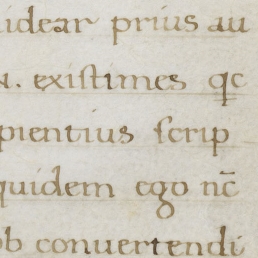 uidear prius au
u. existimes qc
pientius scrip
quidem ego nc̄
ob conuertendi